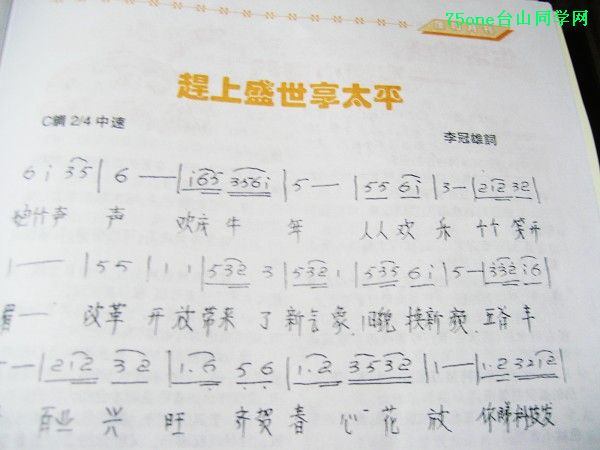 75one台山同学网
趕上盛世享太平
C調 2/4 中速
李冠雄詞
6 i 35 | 6 — — | i65 356i | 5 — | 55 6i | 3 — | 2i2 32 |
炮竹声 声 欢庆牛 年 人人欢 乐 个个笑开
1 — — | 5 5 | 1 1 | 532 3 | 532 1 | 535 6i | 5 — | 332 i6 |
眉 — — 改革 开放带来了新气象 旧貌换新颜 五谷丰
— — | 2i2 32 | 1.6 56 | 1.2 3532 | 1 — | 1.2 32i2 |
百业 兴 旺 齐贺春 心 花 放 你睇科技发